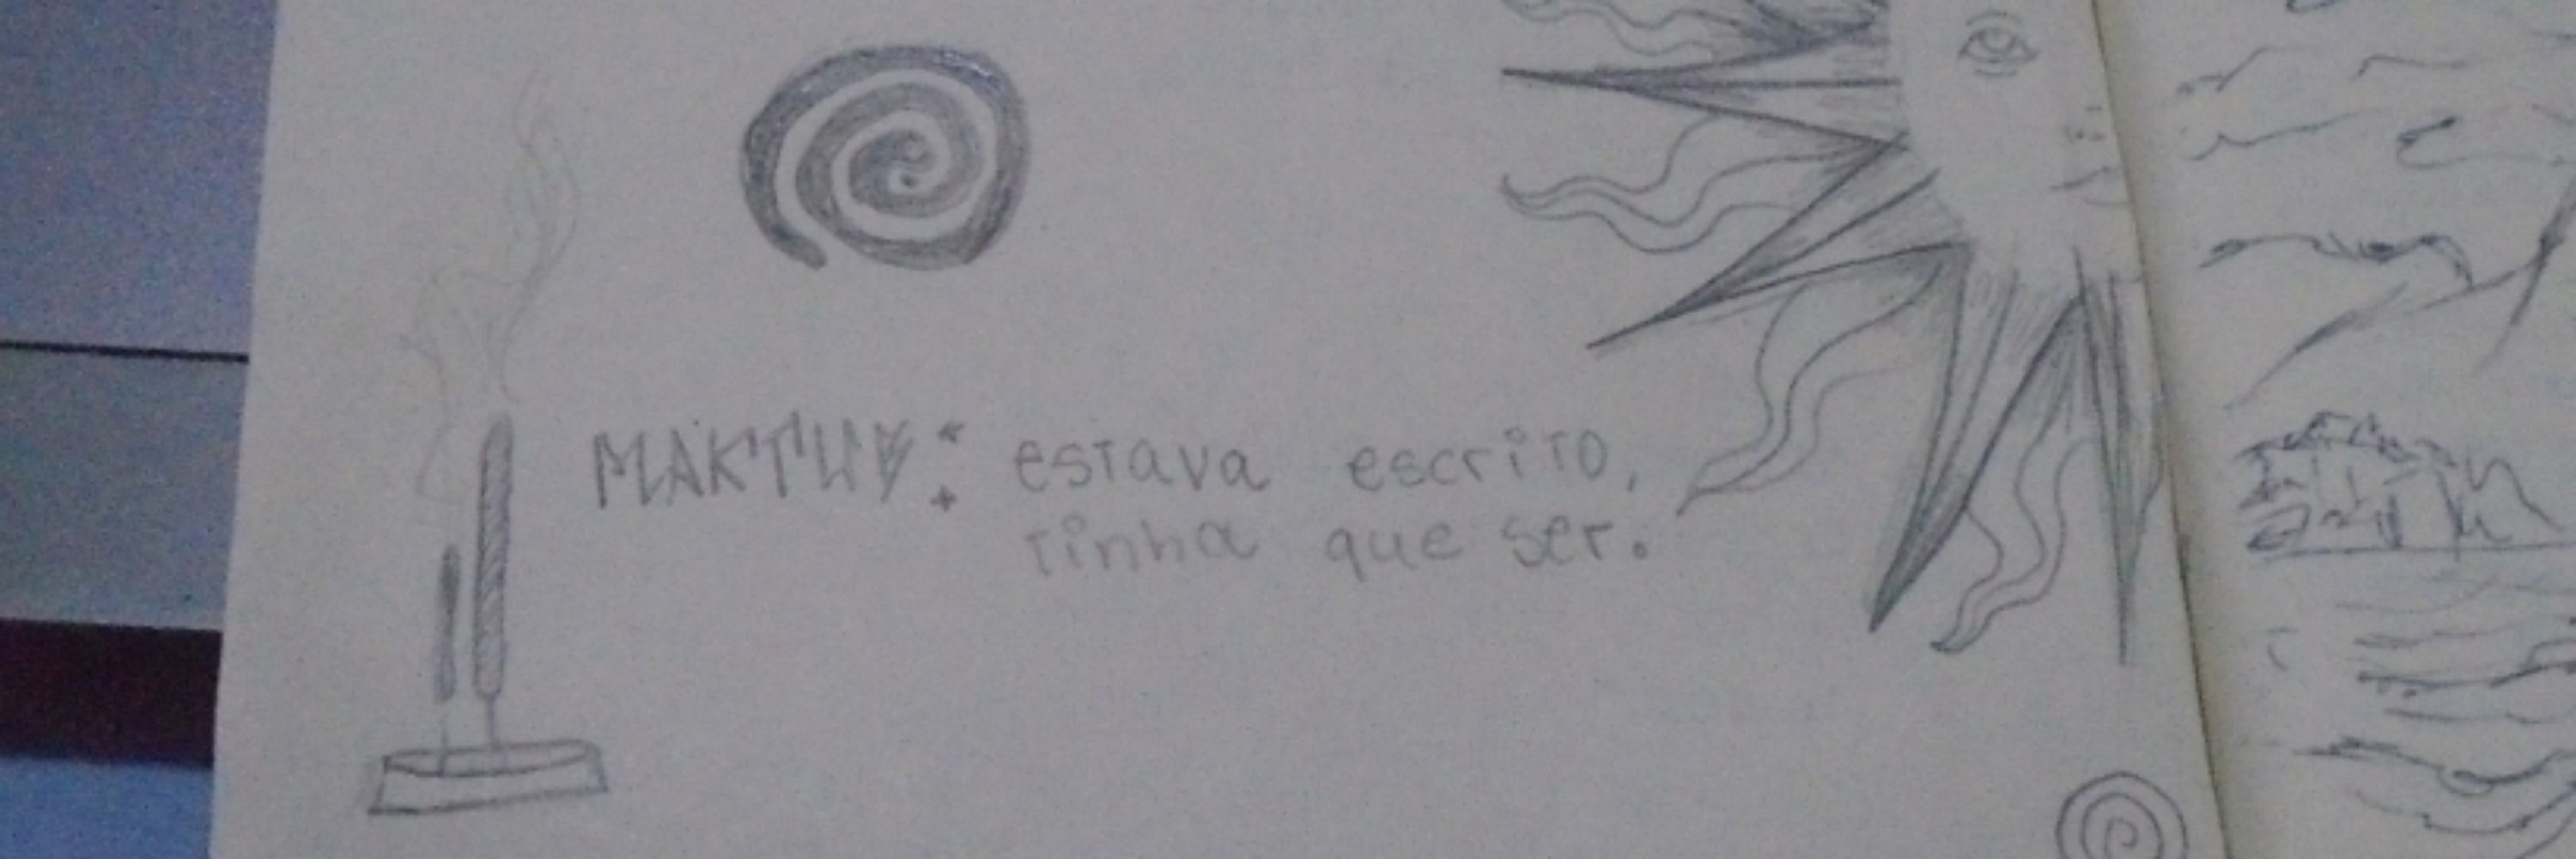 MAKTUB: estava escrito,
tinha que ser.